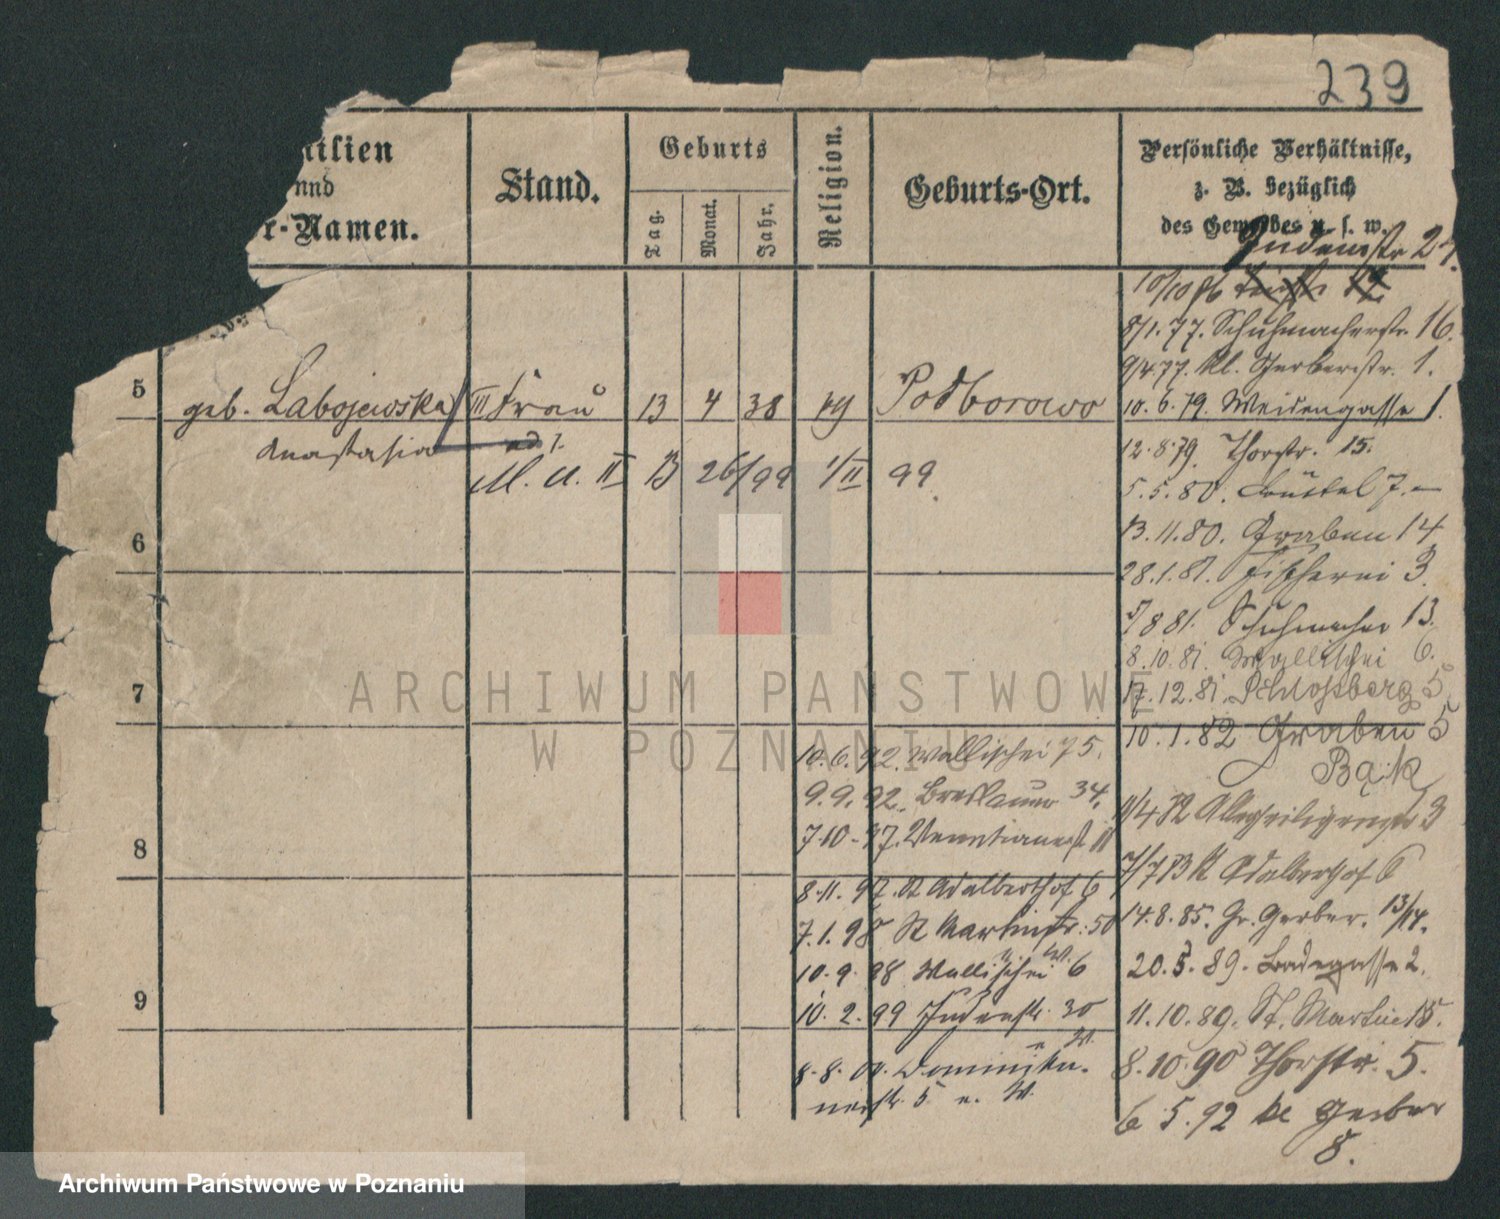 239
milien
und
r-Namen.
Stand.
Geburts
Tag.
Monat.
Jahr.
Religion.
Geburts-Ort.
Persönliche Verhältnisse,
z. B. bezüglich
des Gewerbes u. s. w.
Judenstr 27.
10/10 76
8/1. 77. Schuhmacherstr. 16.
9/4 77. Kl. Gerberstr. 1.
5
geb. Labojewska
III Frau
13 4 38
Podborowo
10. 6. 79. Weidengasse 1.
Anastasia
12. 8. 79. Thorstr. 15.
M. A. II B 26/99 1/II 99
5. 5. 80. 7.
6
13. 11. 80. Graben 14
28. 1. 81. Fischerei 3.
7
5/8 81. Schuhmacher 13.
8. 10. 81. Wallischei 6.
17. 12. 81. Schlossberg 5.
10. 1. 82 Graben 5
Bąk
11/4 82 Allerheiligenstr 3
7/7 83 St Adalberthof 6
14. 8. 85. Gr. Gerber. 13/14.
20. 5. 89. Badegasse 2.
11. 10. 89. St. Martin 15.
8. 10. 90 Thorstr. 5.
6 5. 92 Kl Gerber
8.
10. 6. 92. Wallischei 75.
9. 9. 92. Breslauer 34.
8
7. 10. 97. Venetianerstr
8. 11. 97. St Adalberthof 6
7. 1. 98 St Martinstr. 50
10. 9. 98 Wallischei 6
9
10. 2. 99 Judenstr. 30
8. 8. 01. Dominika-
nerstr. 5 n. W.
ARCHIWUM PAŃSTWOWE
W POZNANIU
Archiwum Państwowe w Poznaniu